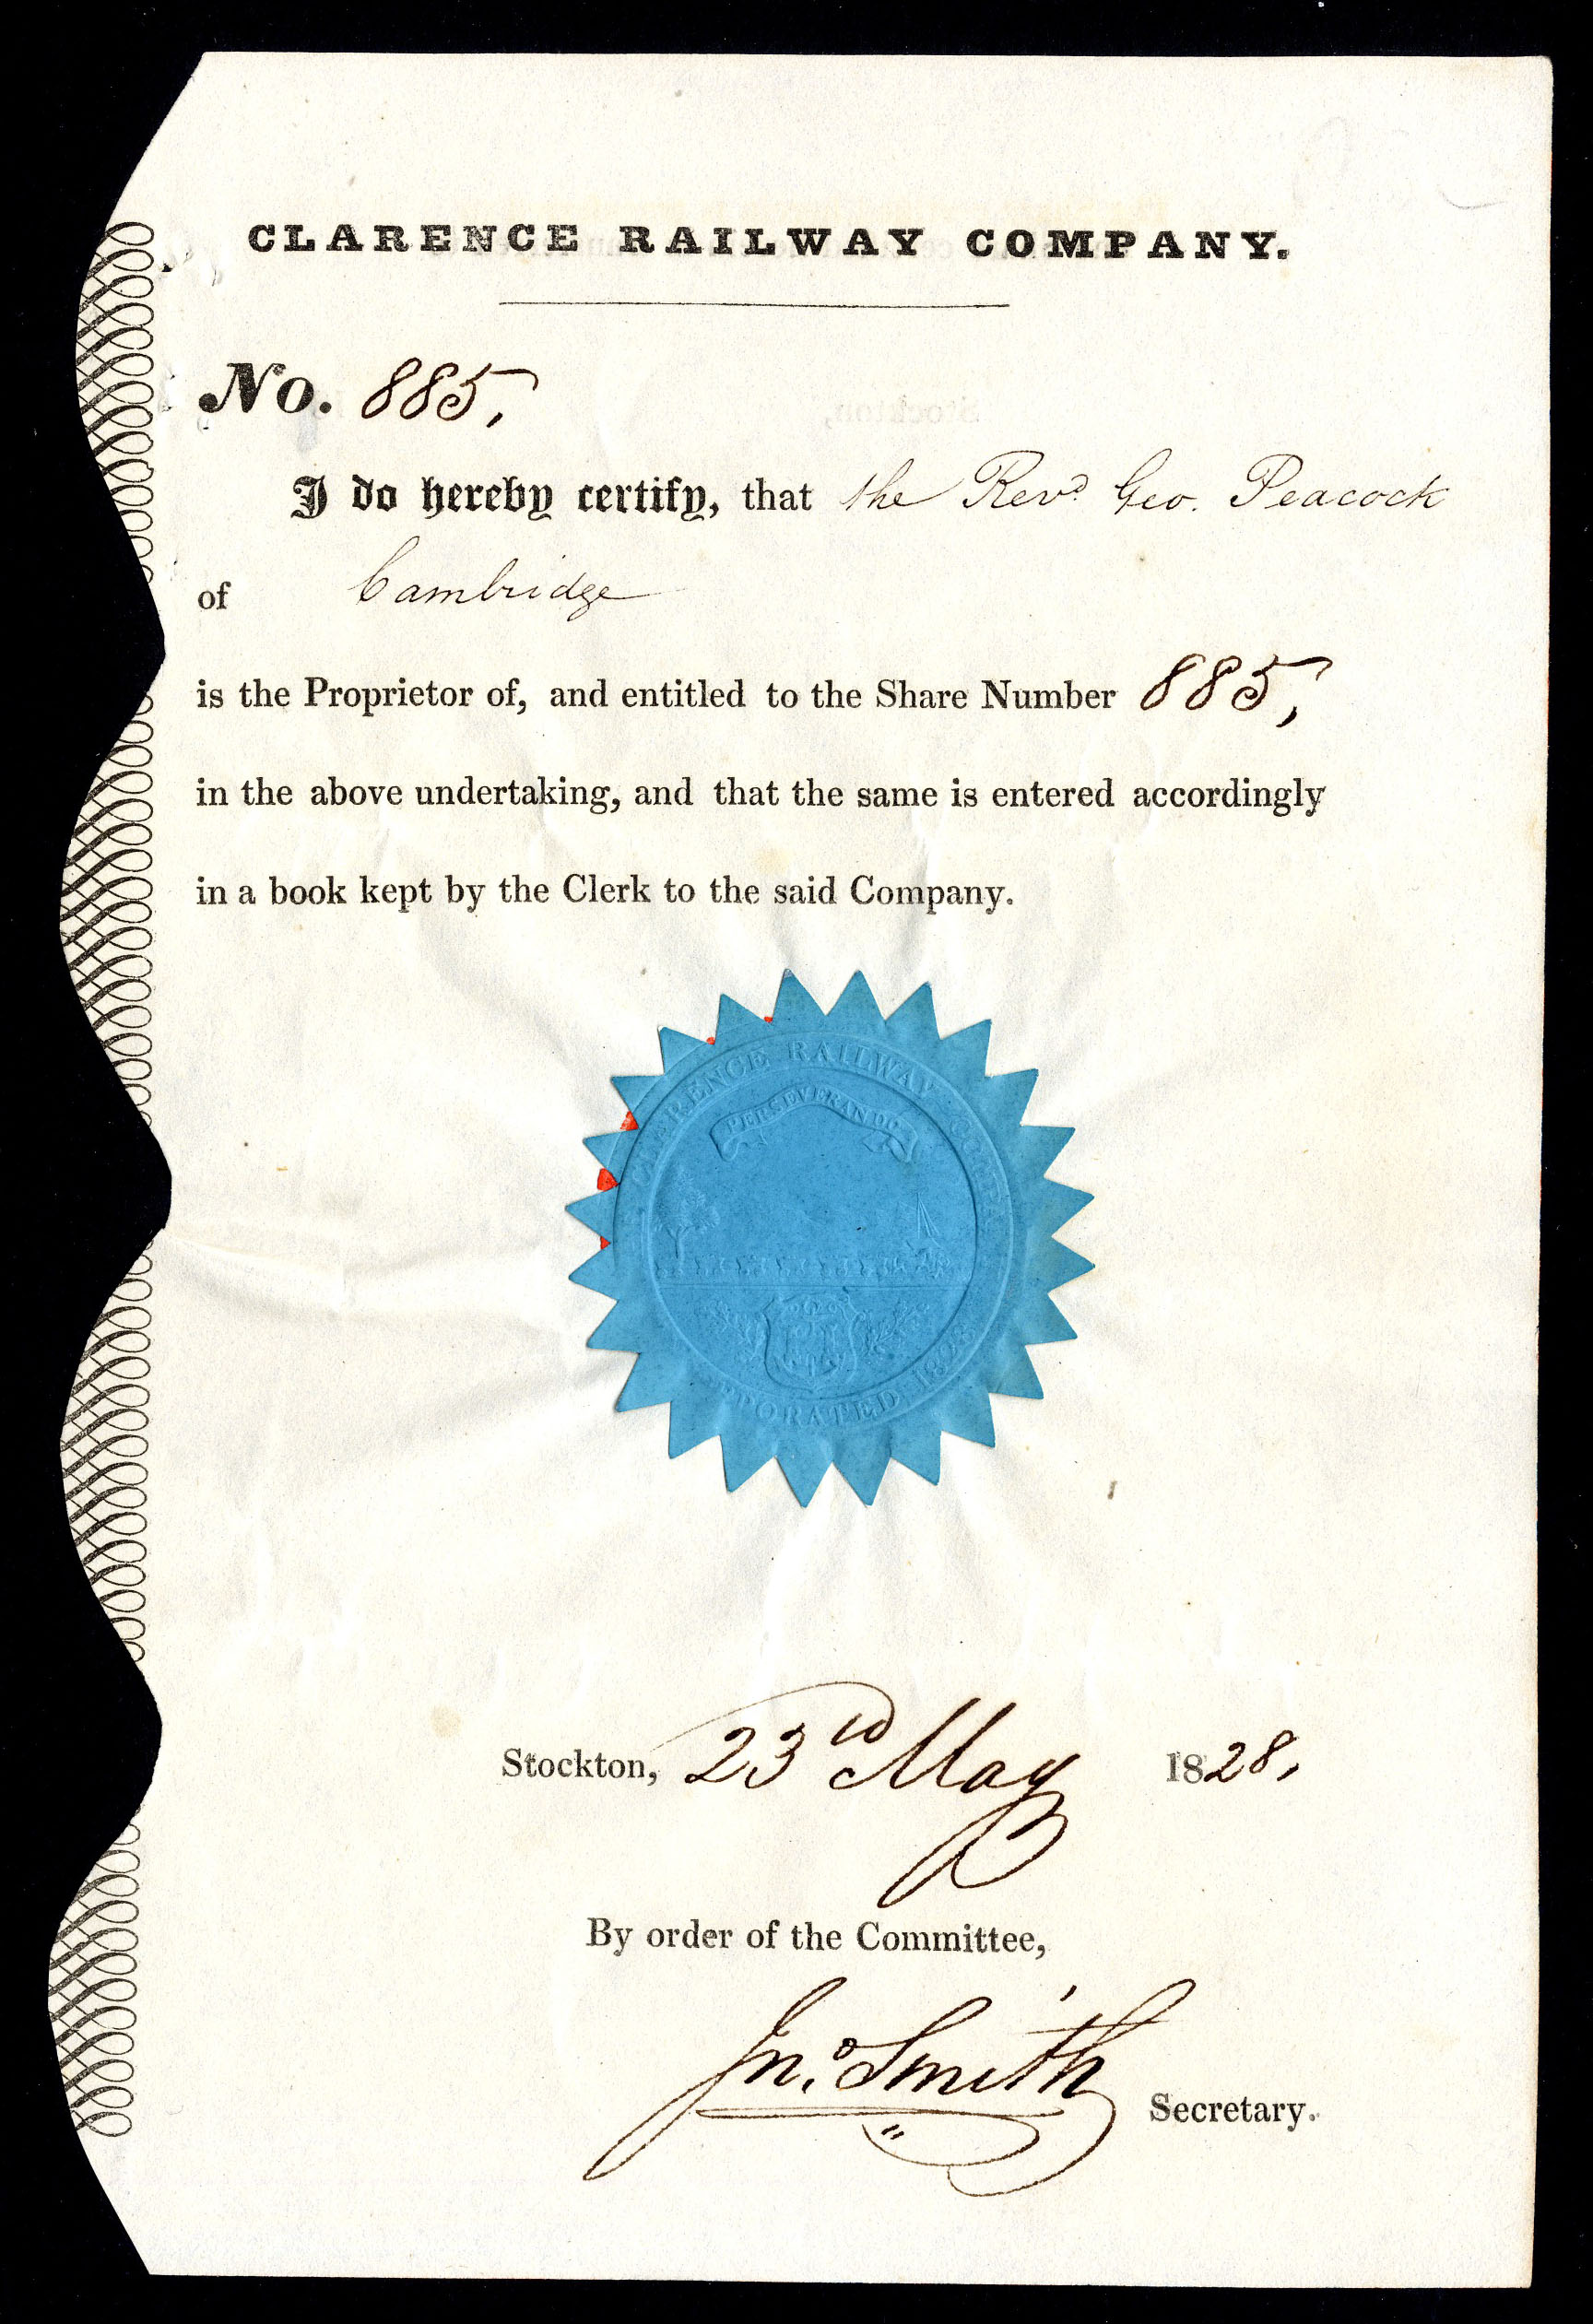 CLARENCE RAILWAY COMPANY.
No. 885,
I do hereby certify, that the Revd. Geo. Peacock
of Cambridge
is the Proprietor of, and entitled to the Share Number 885,
in the above undertaking, and that the same is entered accordingly
in a book kept by the Clerk to the said Company.
CLARENCE RAILWAY
PERSEVERANDO
Stockton, 23rd May 1828,
By order of the Committee,
Jno. Smith Secretary.